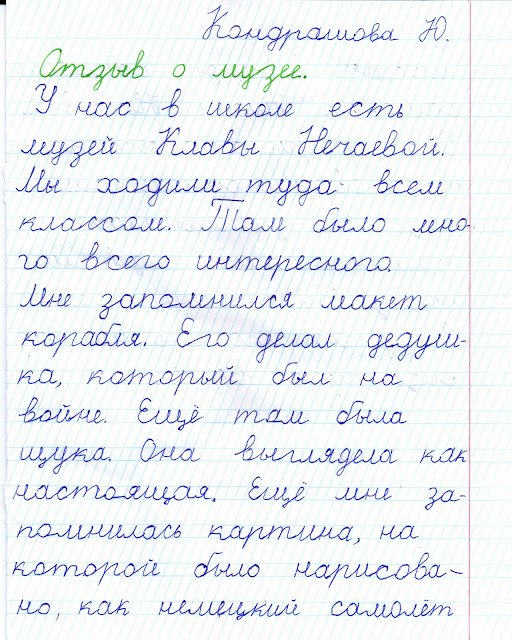 Кондрашова Ю.
Отзыв о музее.
У нас в школе есть
музей Клавы Нечаевой.
Мы ходили туда всем
классом. Там было мно-
го всего интересного.
Мне запомнился макет
корабля. Его делал дедуш-
ка, который был на
войне. Ещё там была
щука. Она выглядела как
настоящая. Ещё мне за-
помнилась картина, на
которой было нарисова-
но, как немецкий самолёт